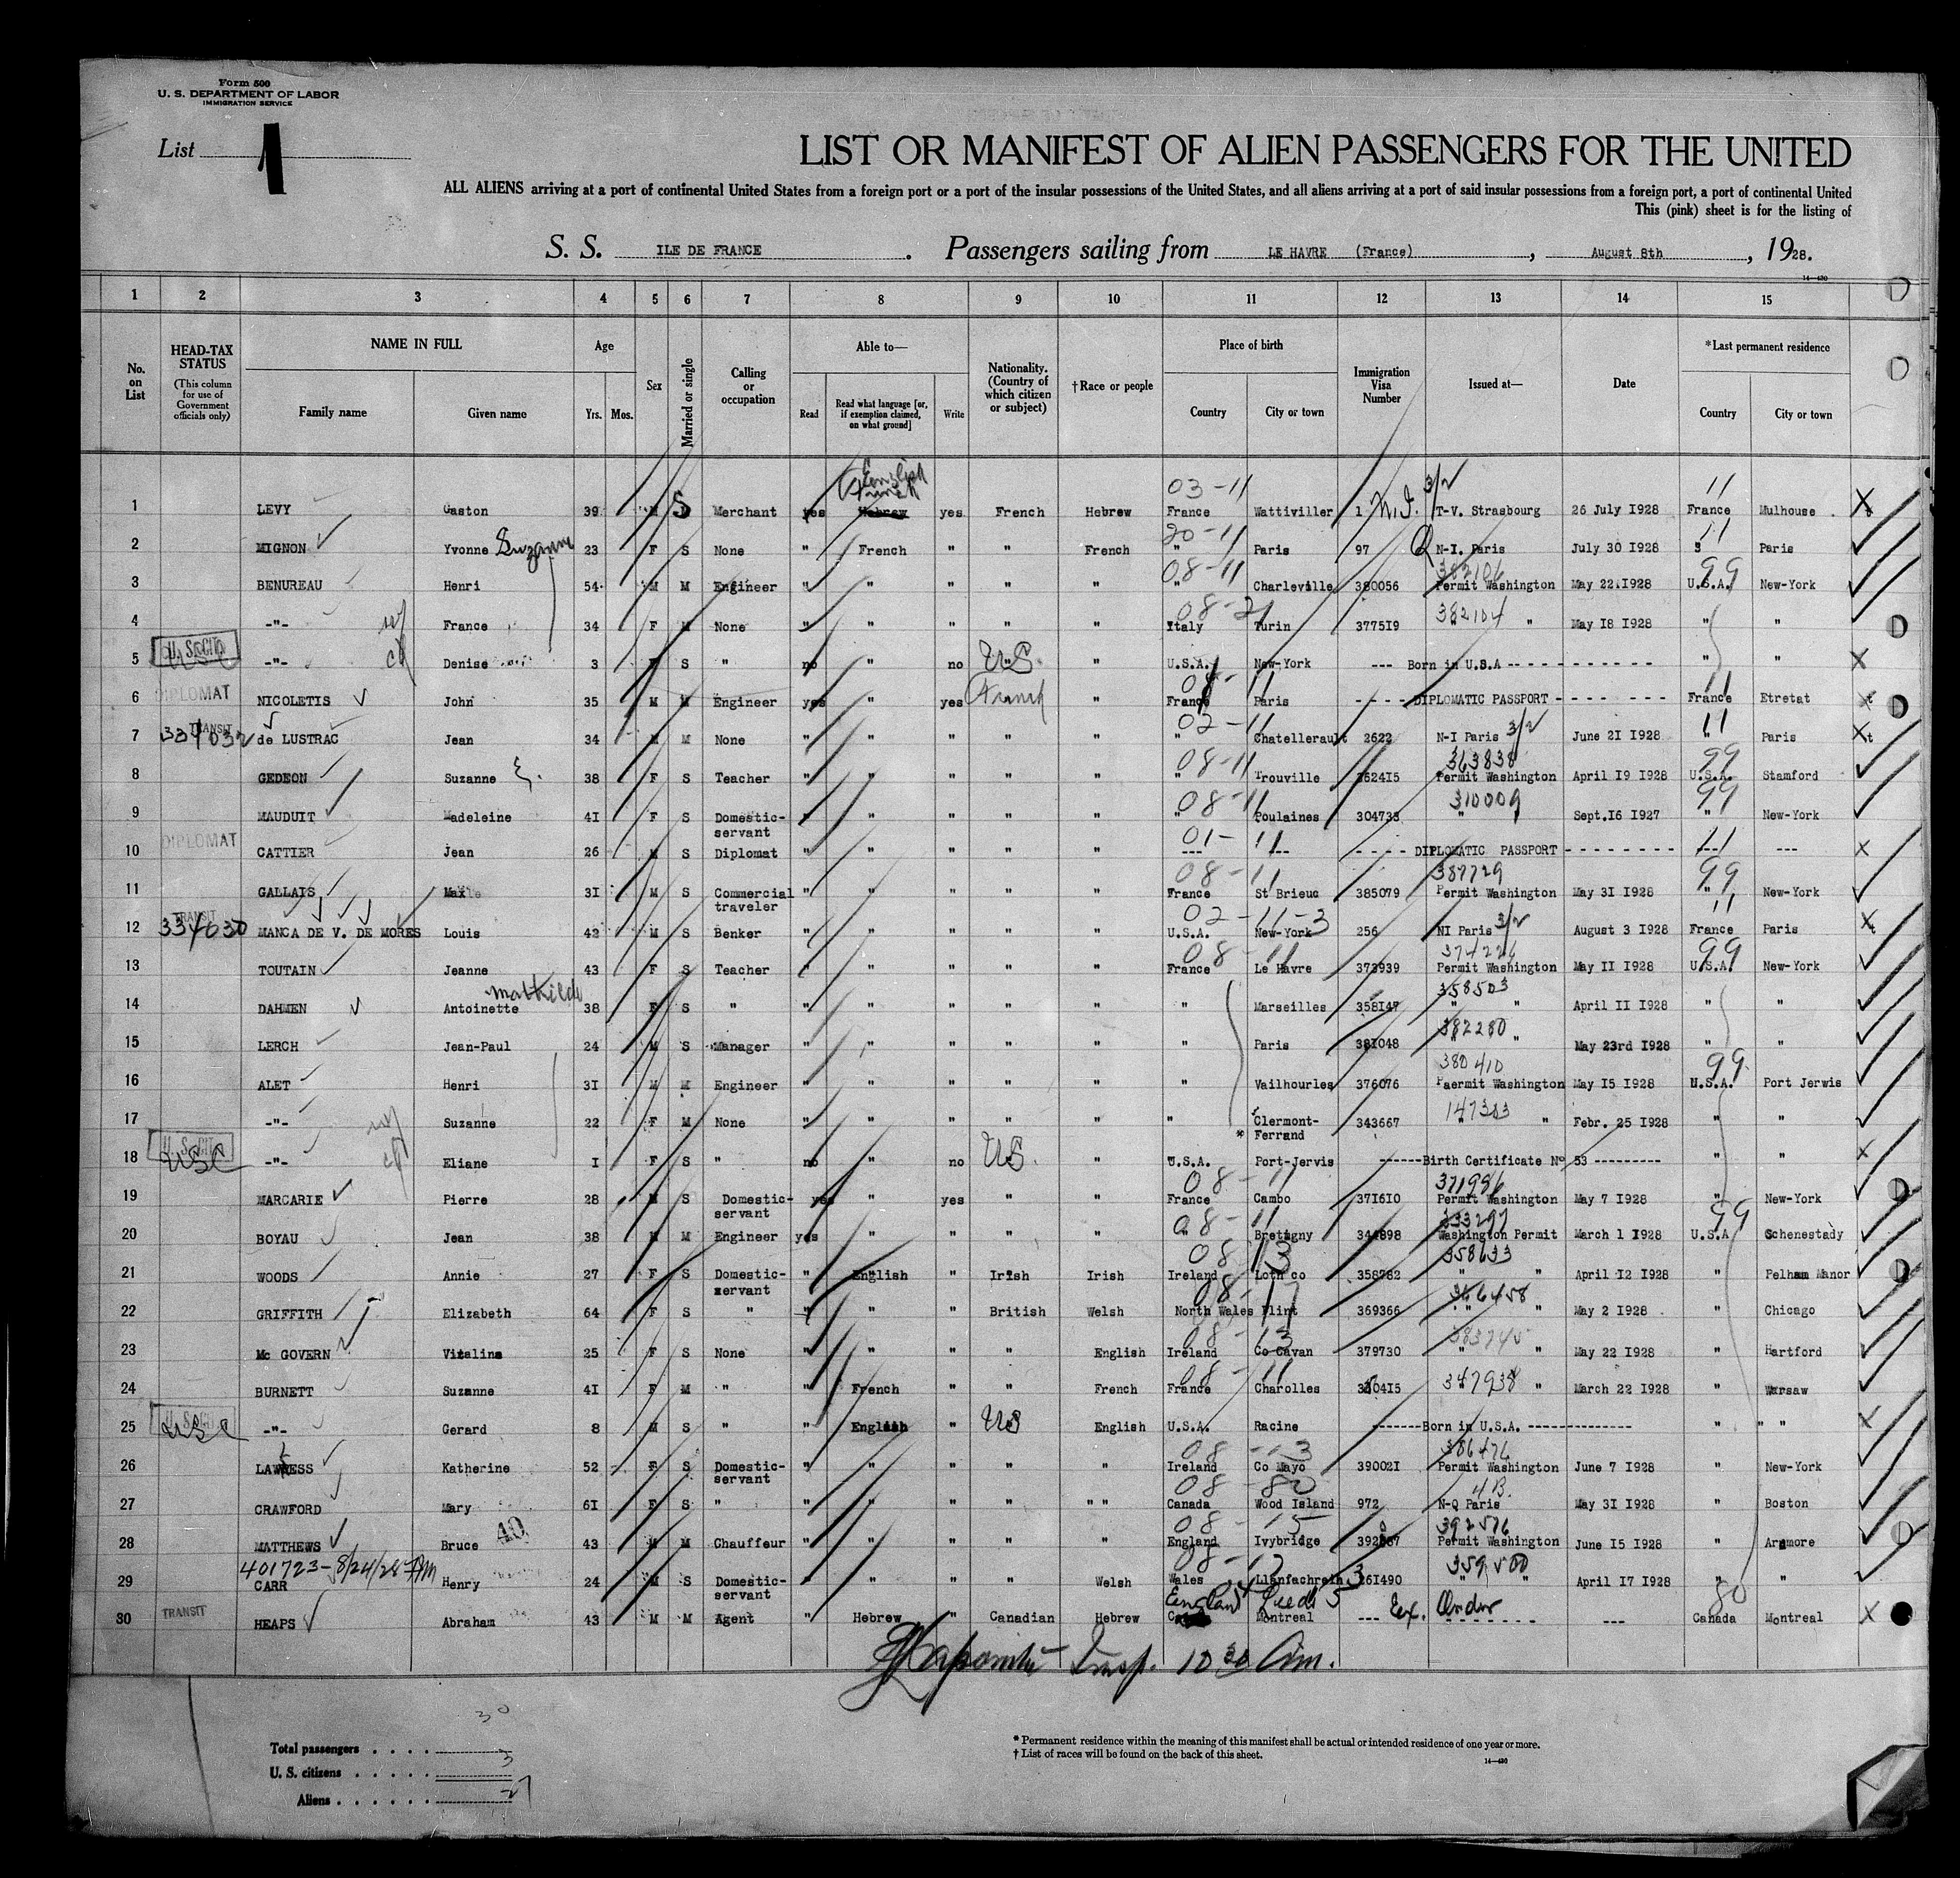 Form 500
U. S. DEPARTMENT OF LABOR
IMMIGRATION SERVICE
List 1
LIST OR MANIFEST OF ALIEN PASSENGERS FOR THE UNITED
ALL ALIENS arriving at a port of continental United States from a foreign port or a port of the insular possessions of the United States, and all aliens arriving at a port of said insular possessions from a foreign port, a port of continental United
This (pink) sheet is for the listing of
S. S. ILE DE FRANCE . Passengers sailing from LE HAVRE (France) , August 8th , 1928.
14—430
1 2 3 4 5 6 7 8 9 10 11 12 13 14 15
No. on List
HEAD-TAX STATUS (This column for use of Government officials only)
NAME IN FULL
Family name Given name
Age
Yrs. Mos.
Sex
Married or single
Calling or occupation
Able to—
Read Read what language [or, if exemption claimed, on what ground] Write
Nationality. (Country of which citizen or subject)
†Race or people
Place of birth
Country City or town
Immigration Visa Number
Issued at—
Date
*Last permanent residence
Country City or town
English French 03-11 N.I. 3/2 11
1 LEVY Gaston 39 M S Merchant yes Hebrew yes French Hebrew France Wattiviller 1 T-V. Strasbourg 26 July I928 France Mulhouse
20-11 11
2 MIGNON Yvonne Suzanne 23 F S None " French " " French " Paris 97 N-I. Paris July 30 I928 Paris
08-11 382106 99
3 BENUREAU Henri 54 M M Engineer " " " " " " Charleville 380056 Permit Washington May 22.I928 U.S.A. New-York
08-21 382104
4 -"- wf France 34 F M None " " " " " Italy Turin 3775I9 " " May I8 I928 " "
5 U. S. CIT. USC -"- ch Denise 3 F S " no " no US " U.S.A. New-York --- Born in U.S.A ----------- " "
DIPLOMAT 11
6 NICOLETIS John 35 M M Engineer yes " yes French " France Paris - - - - DIPLOMATIC PASSPORT - - - - - - - France Etretat
TRANSIT 02-11 3/2 11
7 334632 de LUSTRAC Jean 34 M M None " " " " " " Chatellerault 2622 N-I Paris June 2I I928 " Paris
08-11 363838 99
8 GEDEON Suzanne E. 38 F S Teacher " " " " " " Trouville 3624I5 Permit Washington April I9 I928 U.S.A. Stamford
08-11 310009 99
9 MAUDUIT Madeleine 4I F S Domestic-servant " " " " " " Poulaines 304733 " " Sept.I6 I927 " New-York
DIPLOMAT 01- 11 11
10 CATTIER Jean 26 M S Diplomat " " " " " --- --- - - - - - DIPLOMATIC PASSPORT - - - - - - - - - --- ---
08-11 387729 99
11 GALLAIS Max 3I M S Commercial traveler " " " " " France St Brieuc 385079 Permit Washington May 3I I928 " New-York
TRANSIT 02-11-3 3/2 11
12 334630 MANCA DE V. DE MORES Louis 42 M S Benker " " " " " U.S.A. New-York 256 NI Paris August 3 I928 France Paris
08-11 374226 99
13 TOUTAIN Jeanne 43 F S Teacher " " " " " France Le Havre 373939 Permit Washington May II I928 U.S.A. New-York
Mathilde 358503
14 DAHMEN Antoinette 38 F S " " " " " " " Marseilles 358I47 " " April II I928 " "
382280
15 LERCH Jean-Paul 24 M S Manager " " " " " " Paris 38I048 " " May 23rd I928 " "
380410 99
16 ALET Henri 3I M M Engineer " " " " " " Vailhourles 376076 Paermit Washington May I5 I928 U.S.A. Port Jerwis
147303
17 -"- wf Suzanne 22 F M None " " " " " " Clermont-Ferrand 343667 " " Febr. 25 I928 " "
18 U. S. CIT. USC -"- ch Eliane I F S " no " no US. " U.S.A. Port-Jervis ------Birth Certificate N° 53 --------- " "
08-11 371996
19 MARCARIE Pierre 28 M S Domestic-servant yes " yes " " France Cambo 37I6I0 Permit Washington May 7 I928 " New-York
08-11 333297 99
20 BOYAU Jean 38 M M Engineer yes " " " " " Bretigny 344898 Washington Permit March 1 I928 U.S.A Schenestady
08 13 358633
21 WOODS Annie 27 F S Domestic-servant " English " Irish Irish Ireland Loth co 358782 " " April I2 I928 " Pelham Manor
08- 17 366458
22 GRIFFITH Elizabeth 64 F S " " " " British Welsh North Wales Flint 369366 " " May 2 I928 " Chicago
08-13 383745
23 Mc GOVERN Vitalina 25 F S None " " " " English Ireland Co Cavan 379730 " " May 22 I928 " Hartford
08-11 347938
24 BURNETT Suzanne 4I F M " " French " " French France Charolles 3504I5 " " March 22 I928 " Warsaw
25 U. S. CIT. USC -"- Gerard 8 M S " " English " US English U.S.A. Racine -------Born in U.S.A. -------------- " " "
08-13 386476
26 LAWLESS Katherine 52 F S Domestic-servant " " " " " Ireland Co Mayo 39002I Permit Washington June 7 I928 " New-York
08-80 4B.
27 CRAWFORD Mary 6I F S " " " " " " " Canada Wood Island 972 N-Q Paris May 3I I928 " Boston
40 08-15 392576
28 MATTHEWS Bruce 43 M M Chauffeur " " " " " England Ivybridge 392887 Permit Washington June I5 I928 " Ardmore
401723-8/24/28 08-17 359500
29 CARR Henry 24 M S Domestic-servant " " " " Welsh Wales Llanfachreth 36I490 " " April I7 I928 " "
England Leeds 5 80
30 TRANSIT HEAPS Abraham 43 M M Agent " Hebrew " Canadian Hebrew Montreal --- Ex. Order --- Canada Montreal
Insp. 10 30 Am.
30
Total passengers . . . .
U. S. citizens . . . . . 3
Aliens . . . . . . 27
* Permanent residence within the meaning of this manifest shall be actual or intended residence of one year or more.
† List of races will be found on the back of this sheet.
14—430